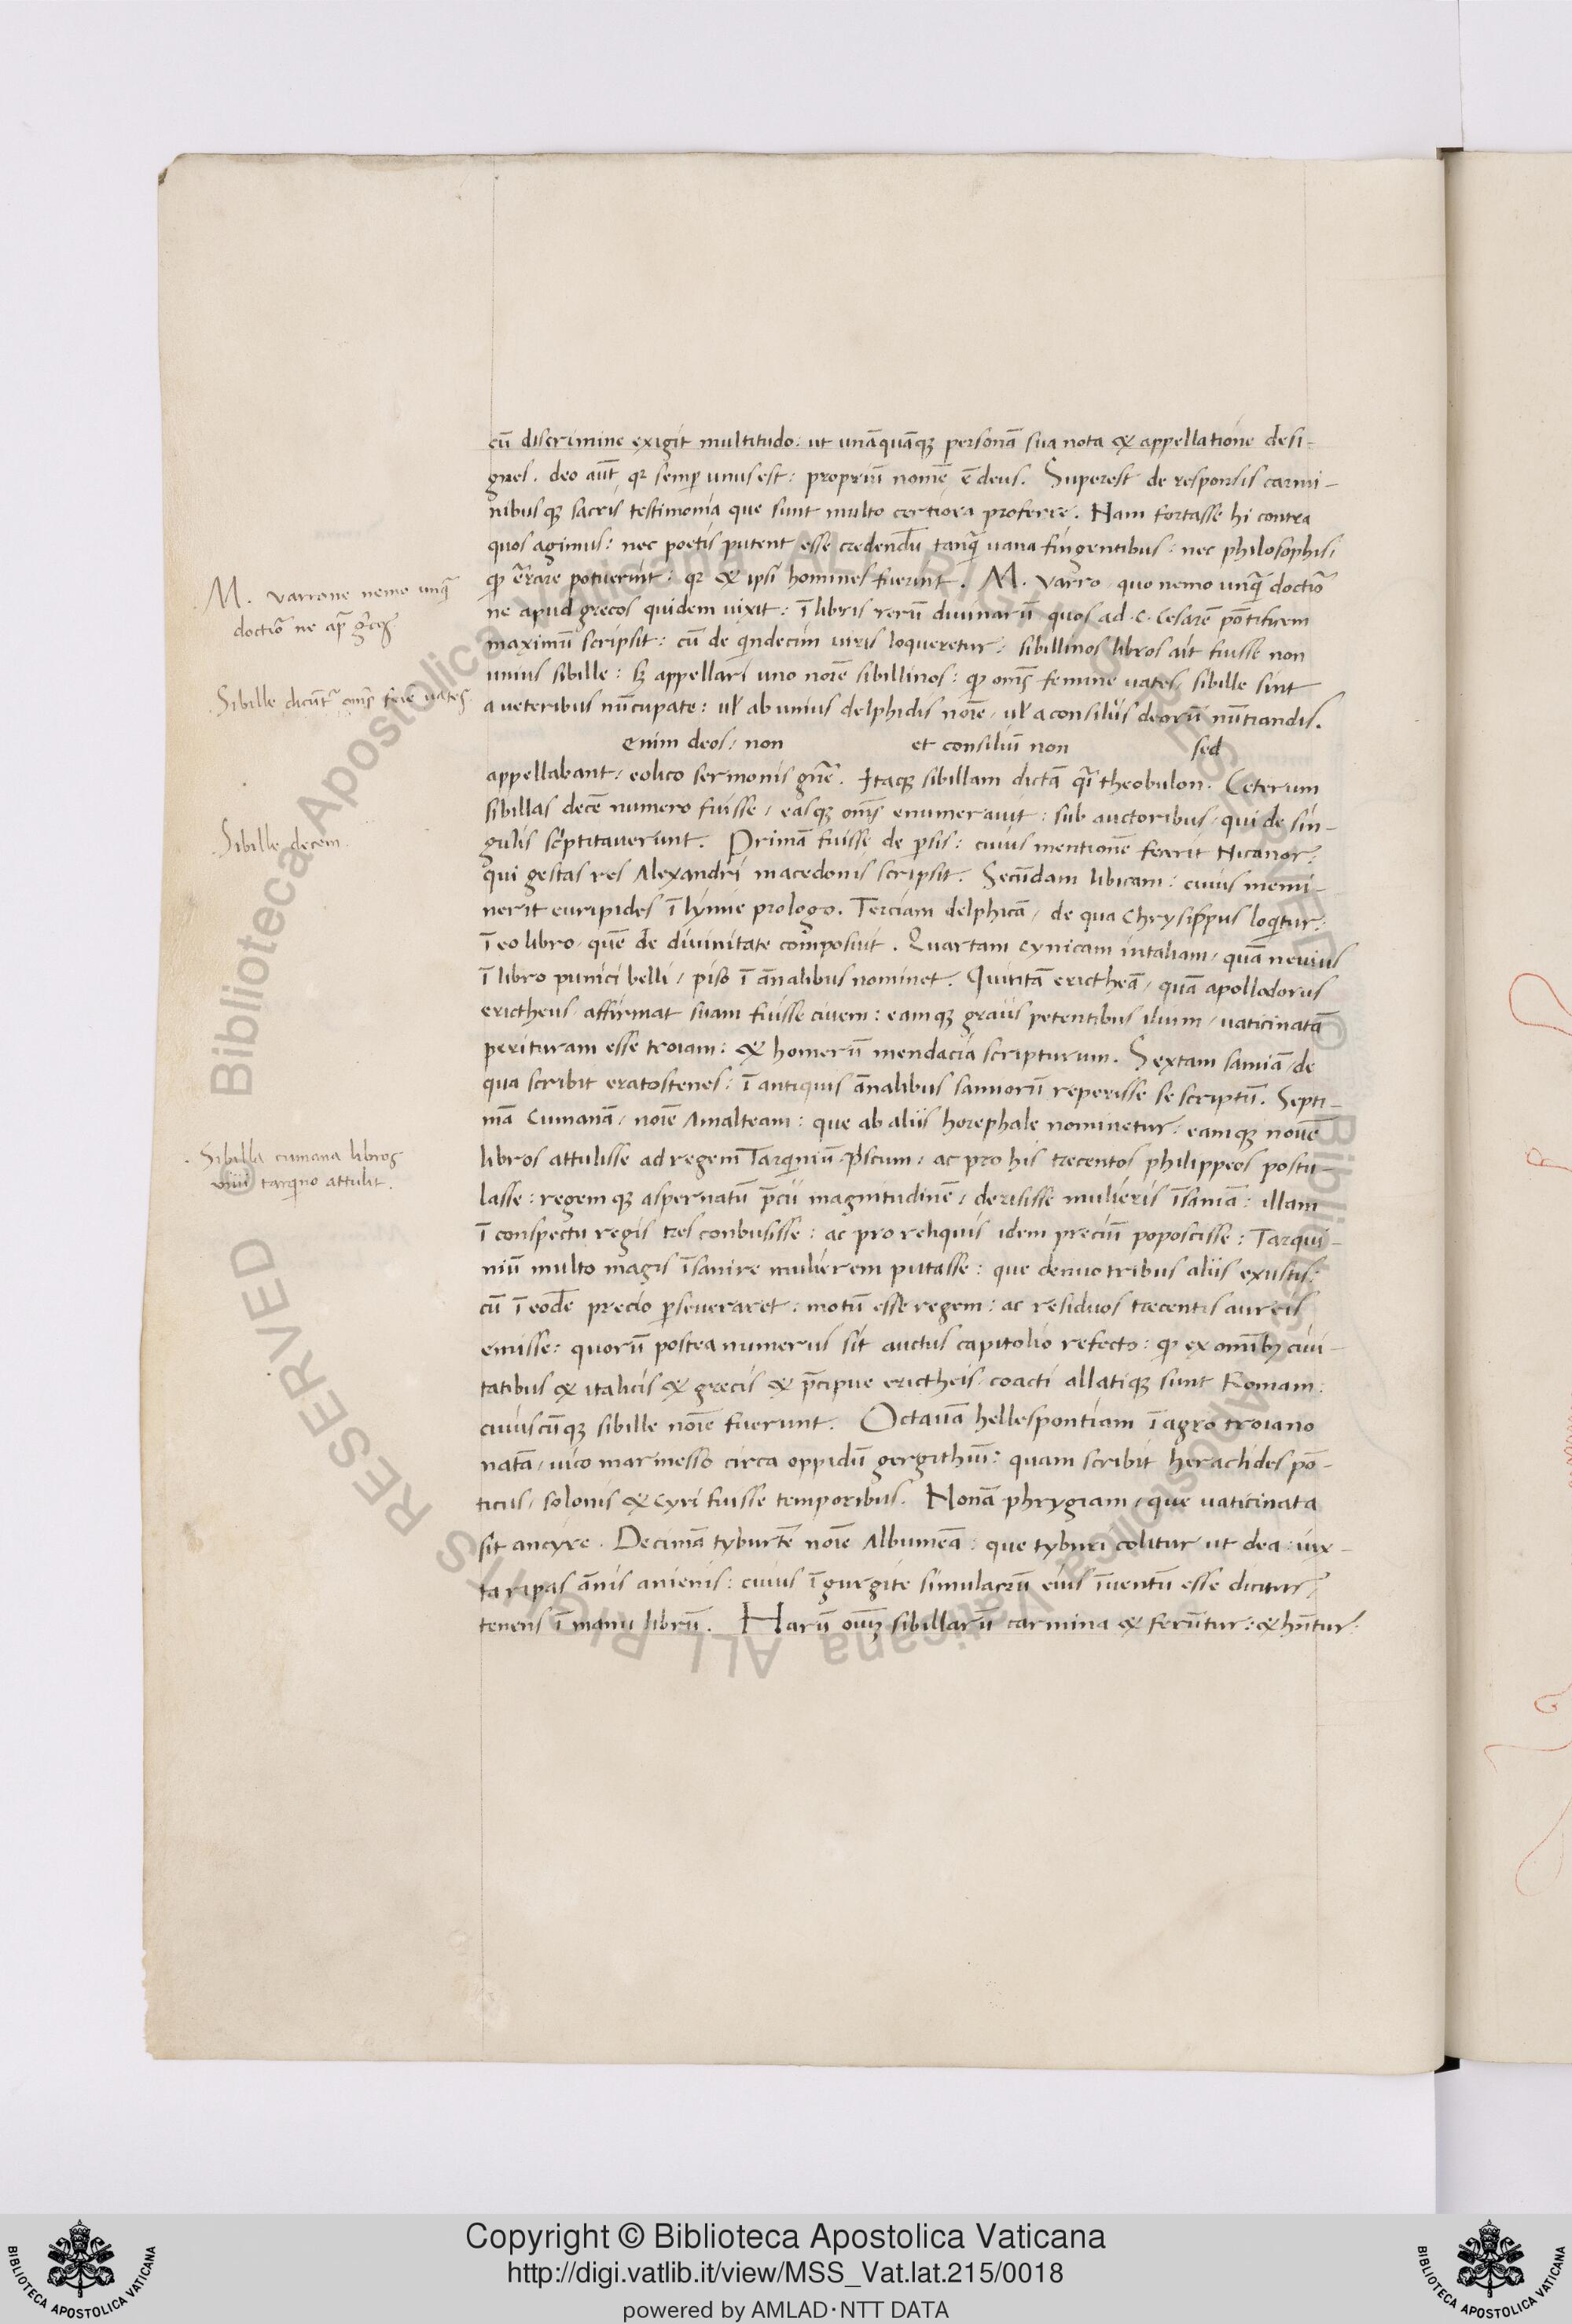 cū discrimine exigit multitudo: ut unāquāqꝫ personā sua nota & appellatione desi-
gnes. deo aūt qꝛ semꝑ unus est: propriū nomē ē deus. Superest de responsis carmi-
nibusqꝫ sacris testimonia que sunt multo certiora proferre. Nam fortasse hi contra
quos agimus: nec poetis putent esse credendū tanqꝫ̄ uana fingentibus: nec philosophis,
ꝙ errare potuerīt: qꝛ & ipsi homines fuerunt. M. varro, quo nemo unqꝫ̄ doctiõ
M. varrone nemo unqꝫ̄
doctiõ ne ap̄ grecos
ne apud grecos quidem uixit: ī libris rerū diuinarū quos ad .C. Cesarē pōtificem
maximū scripsit: cū de qindecim uiris loqueretur: sibillinos libros ait fuisse non
unius sibille: sꝫ appellari uno noīe sibillinos: ꝙ om̄s femine uates, sibille sint
Sibille dicūt᷑ om̄s fere uates.
a ueteribus nūcupate: ul̄ ab unius delphidis noīe, ul̄ a consiliis deorū nūtiandis.
enim deos, non et consiliū non sed
appellabant, eolico sermonis gn̄e. Itaqꝫ sibillam dictā q̄i theobulon. Ceterum
sibillas decē numero fuisse, easqꝫ om̄s enumerauit: sub auctoribus, qui de sin-
Sibille decem.
gulis scptitauerunt. Primā fuisse de ꝑsis: cuius mentionē fecerit Nicanor:
qui gestas res Alexandri macedonis scripsit. Secūdam libicam: cuius memi-
nerit euripides ī lymie prologo. Terciam delphicā, de qua Chrysippus loqitur:
ī eo libro, quē de diuinitate composuit. Quartam Cynicam in taliam, quā neuius
ī libro punici belli, piso ī ānalibus nominet. Quītā erictheā, quā apollodorus
erictheus affirmat suam fuisse ciuem: eamqꝫ graiis petentibus ilium, uaticinatā
perituram esse troiam: & homerū mendacia scripturum. Sextam samiā, de
qua scribit eratostenes: ī antiquis ānalibus samiorū reperisse se scriptū. Septi-
mā Cumanā, noīe Amalteam: que ab aliis horephale nominetur: eamqꝫ nouē
Sibilla cumana libros
viiii tarqino attulit.
libros attulisse ad regem Tarqiniū pscum, ac pro his trecentos philippeos postu-
lasse: regemqꝫ aspernatū p̄cii magnitudinē, derisisse mulieris īsaniā: illam
ī conspectu regis tres conbusisse: ac pro reliquis idem preciū poposcisse: Tarqui-
niū multo magis īsanire mulierem putasse: que denuo tribus aliis exustis:
cū ī eodē precio ꝑseueraret: motū esse regem: ac residuos trecentis aureis
emisse: quorū postea numerus sit auctus capitolio refecto: ꝙ ex omībꝫ ciui-
tatibus & italicis & grecis & p̄cipue erictheis, coacti allatiqꝫ sunt Romam:
cuiuscūqꝫ sibille noīe fuerunt. Octauā hellespontiam ī agro troiano
natā, uico marmesso circa oppidū gergithiū: quam scribit heraclides pō-
ticus, solonis & Cyri fuisse temporibus. Nonā phrygiam, que uaticinata
sit ancyre. Decimā tyburtē noīe Albumeā: que tyburi colitur ut dea: iux-
ta ripas ānis anienis: cuius ī gurgite simulacrū eius īuentū esse dicitur,
tenens ī manu librū. Harū oīūꝫ sibillarū carmina & ferūtur: & hn̄tur:
Copyright © Biblioteca Apostolica Vaticana
http://digi.vatlib.it/view/MSS_Vat.lat.215/0018
powered by AMLAD·NTT DATA
BIBLIOTECA APOSTOLICA VATICANA
BIBLIOTECA APOSTOLICA VATICANA
© Biblioteca Apostolica Vaticana ALL RIGHTS RESERVED
© Biblioteca Apostolica Vaticana ALL RIGHTS RESERVED